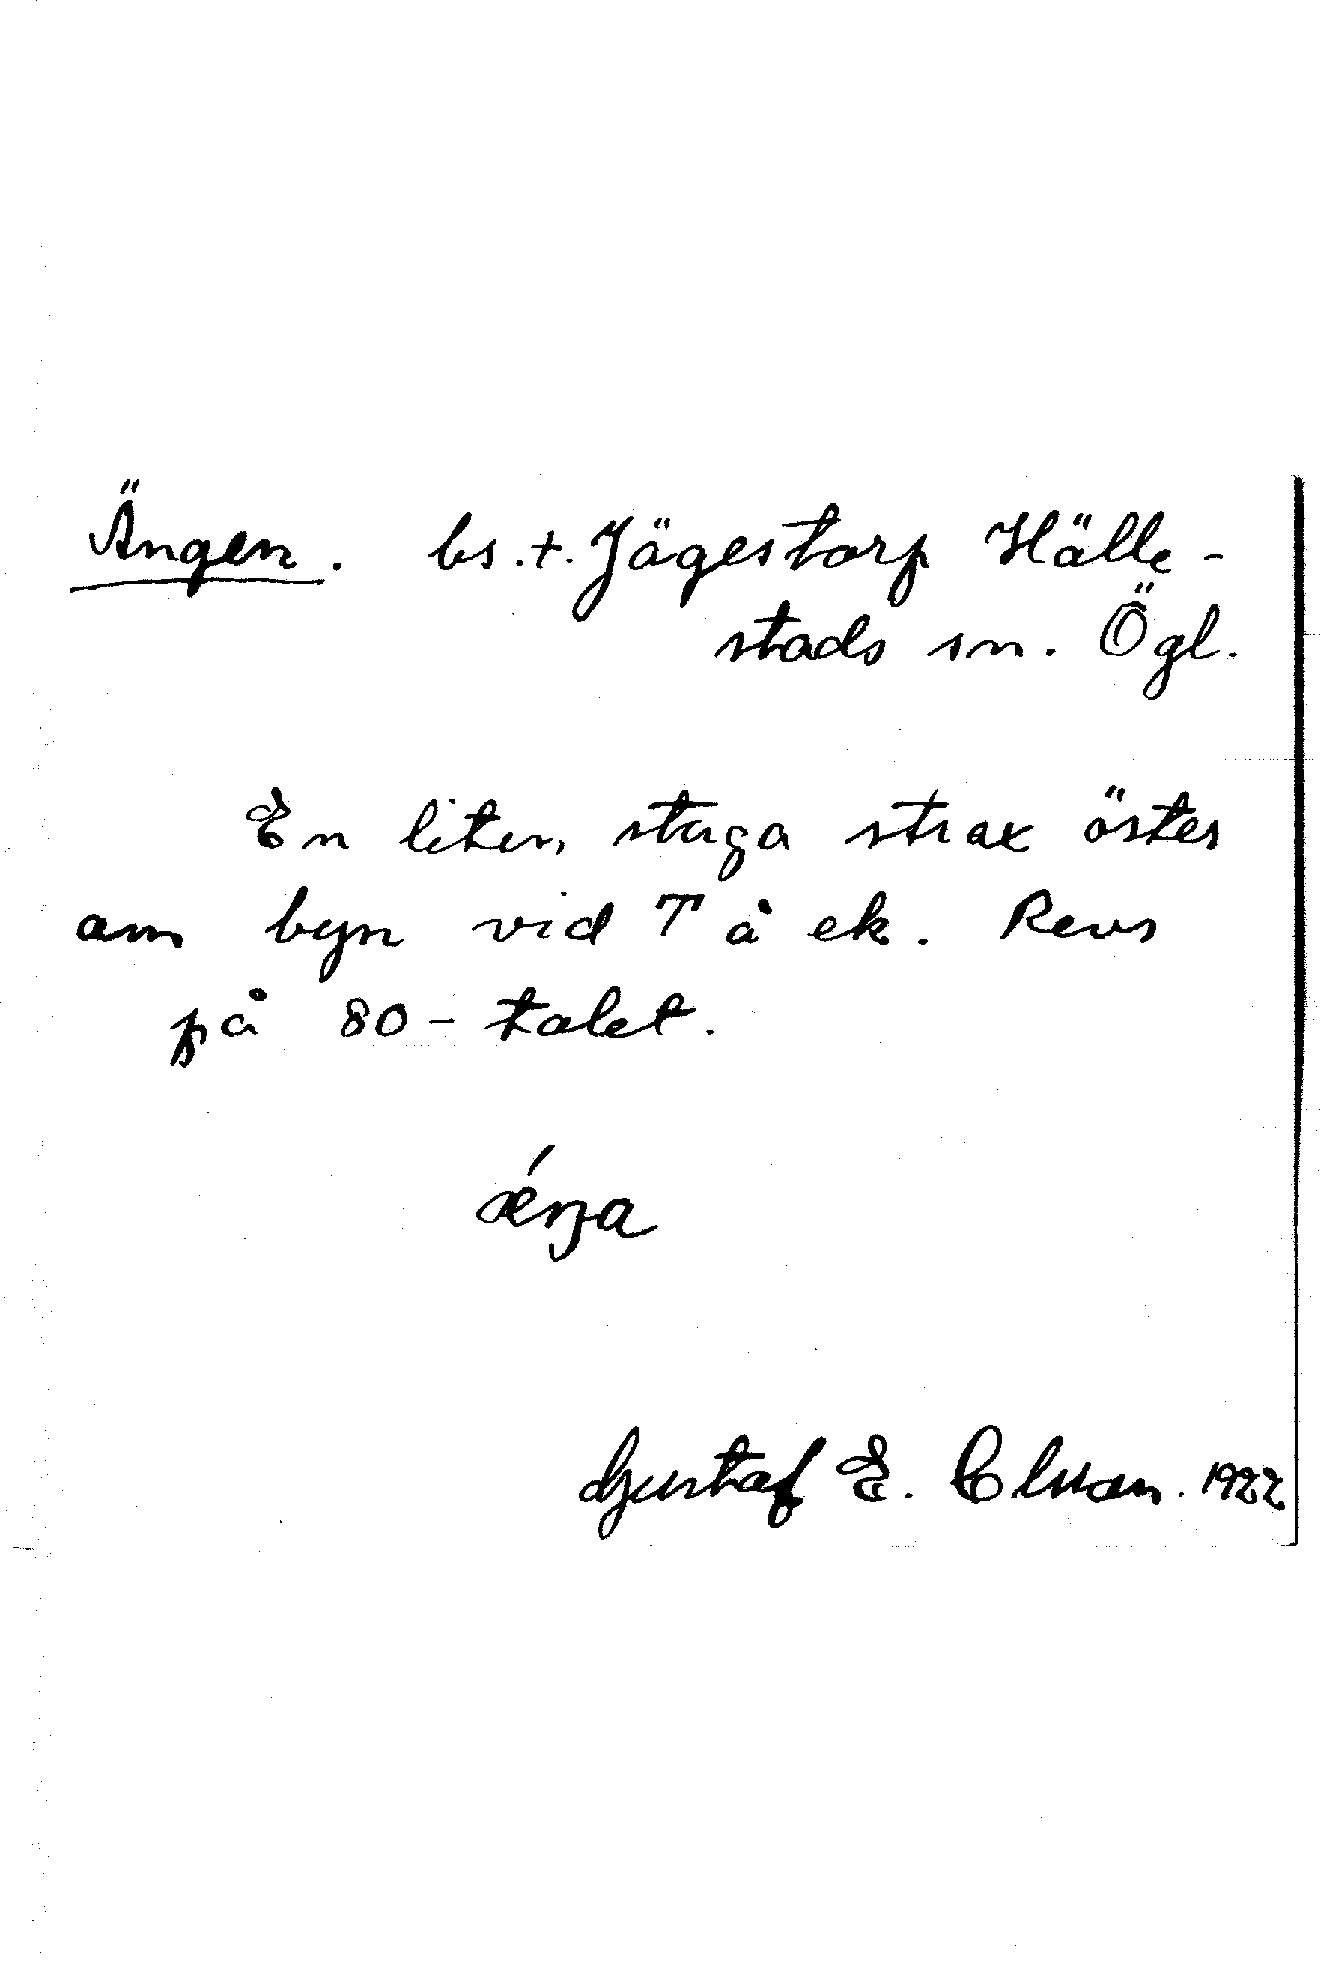 Ängen. bs.t. Jägestorp Hälle-
stads sn. Ögl.
En liten stuga strax öster
om byn vid Tåek. Revs
på 80-talet.
ǽŋa
Gustaf E. Olsson. 1922